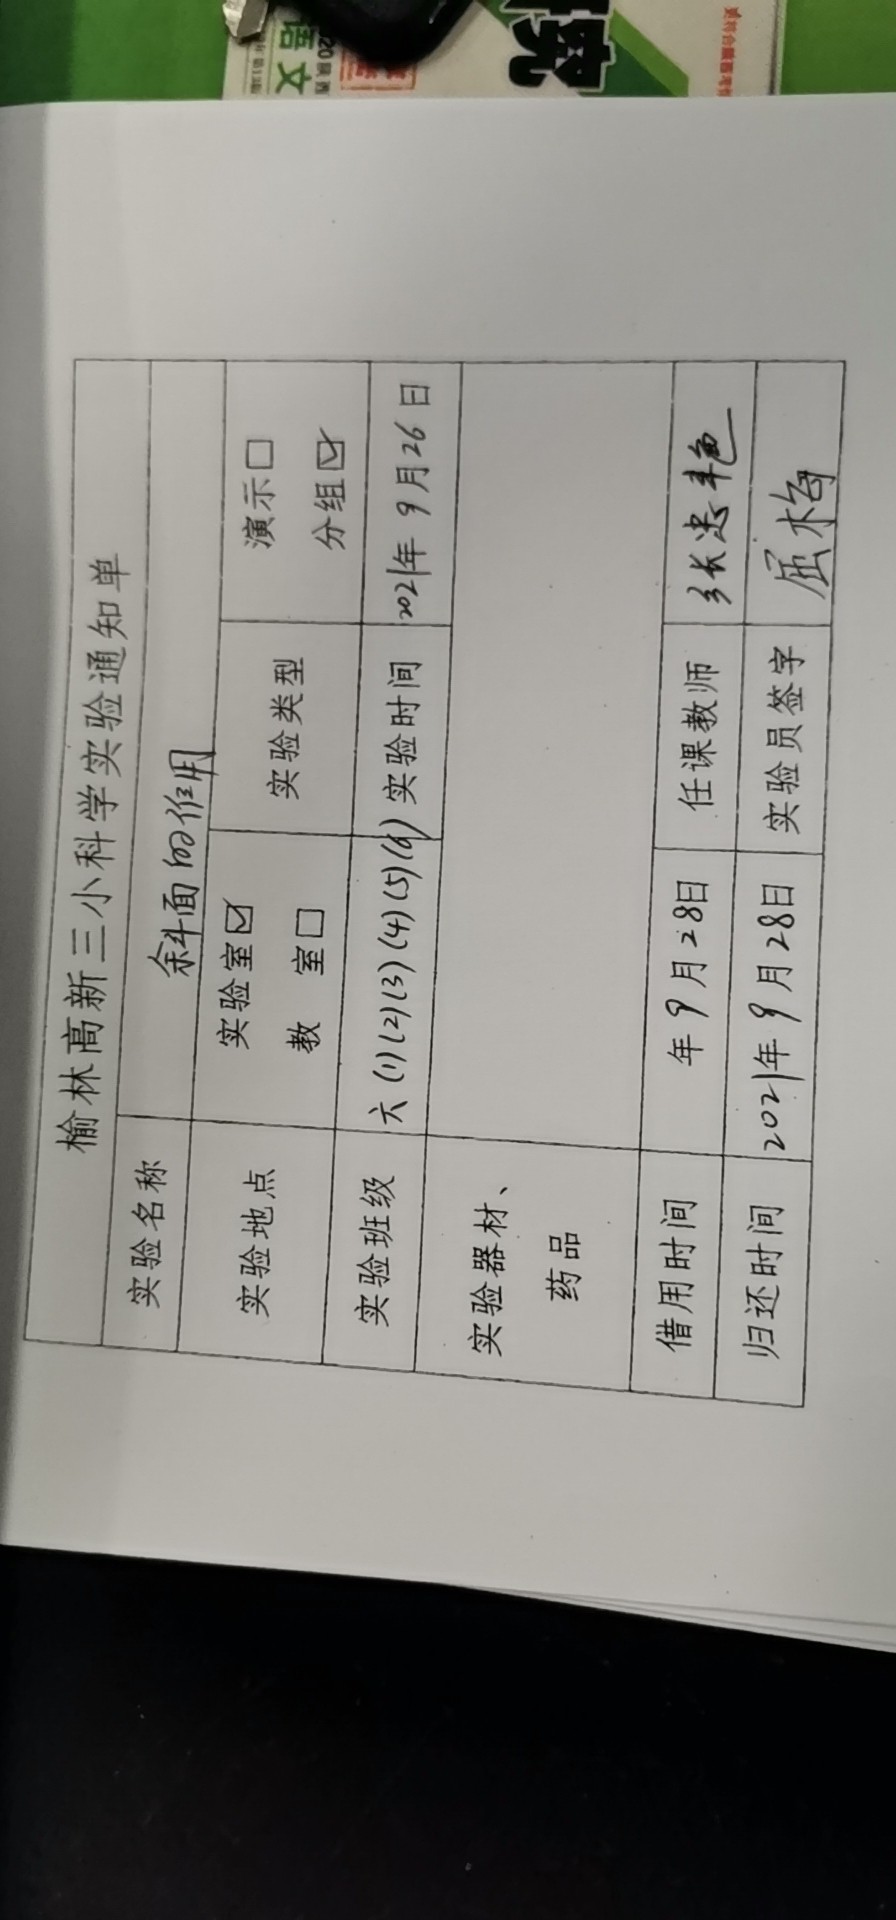 榆林高新三小科学实验通知单
实验名称 斜面的作用
实验地点 实验室☑ 教 室☐ 实验类型 演示☐ 分组☑
实验班级 六(1)(2)(3)(4)(5)(6) 实验时间 2021年 9月26日
实验器材、
药品
借用时间 年 9月28日 任课教师 张忠
归还时间 2021年 9月28日 实验员签字 屈梅
语文
究